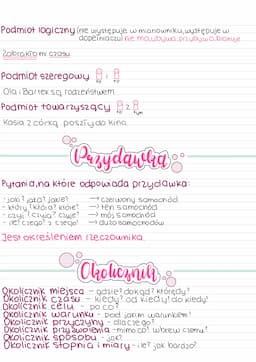 Podmiot logiczny (nie występuje w mianowniku, występuje w
dopełniaczu) nie ma, ubywa, przybywa, brakuje
Zabrakło mi czasu.
Podmiot szeregowy i
Ola i Bartek są rodzeństwem.
Podmiot towarzyszący z
Kasia z córką poszły do kina.
Przydawka
Pytania, na które odpowiada przydawka:
- jaki? jaka? jakie? → czerwony samochód
- który? która? które? → ten samochód
- czyj? czyja? czyje? → mój samochód
- ile? czego? z czego? → dużo samochodów
Jest określeniem rzeczownika.
Okolicznik
Okolicznik miejsca - gdzie? dokąd? którędy?
Okolicznik czasu - kiedy? od kiedy? do kiedy?
Okolicznik celu - po co?
Okolicznik warunku - pod jakim warunkiem?
Okolicznik przyczyny - dlaczego?
Okolicznik przyzwolenia - mimo co? wbrew czemu?
Okolicznik sposobu - jak?
Okolicznik stopnia i miary - ile? jak bardzo?